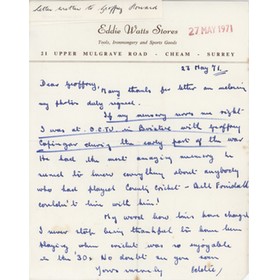 Letter written to Geoffrey Howard
Eddie Watts Stores
Tools, Ironmongery and Sports Goods
27 MAY 1971
21 UPPER MULGRAVE ROAD - CHEAM - SURREY
23 May 71.
Dear Geoffrey,
Many thanks for letter on returning
my photos duly signed.
If my memory serves me right
I was at O.C.T.U in with Geoffrey
during the early part of the war
He had the most amazing memory he
seemed to know everything about anybody
who had played County cricket - Bill Ponsdall
couldn't with him!
My word how times have changed
I never stop being thankful to have been
playing when cricket was so enjoyable
in the 30s No doubt as you
Yours sincerely Eddie